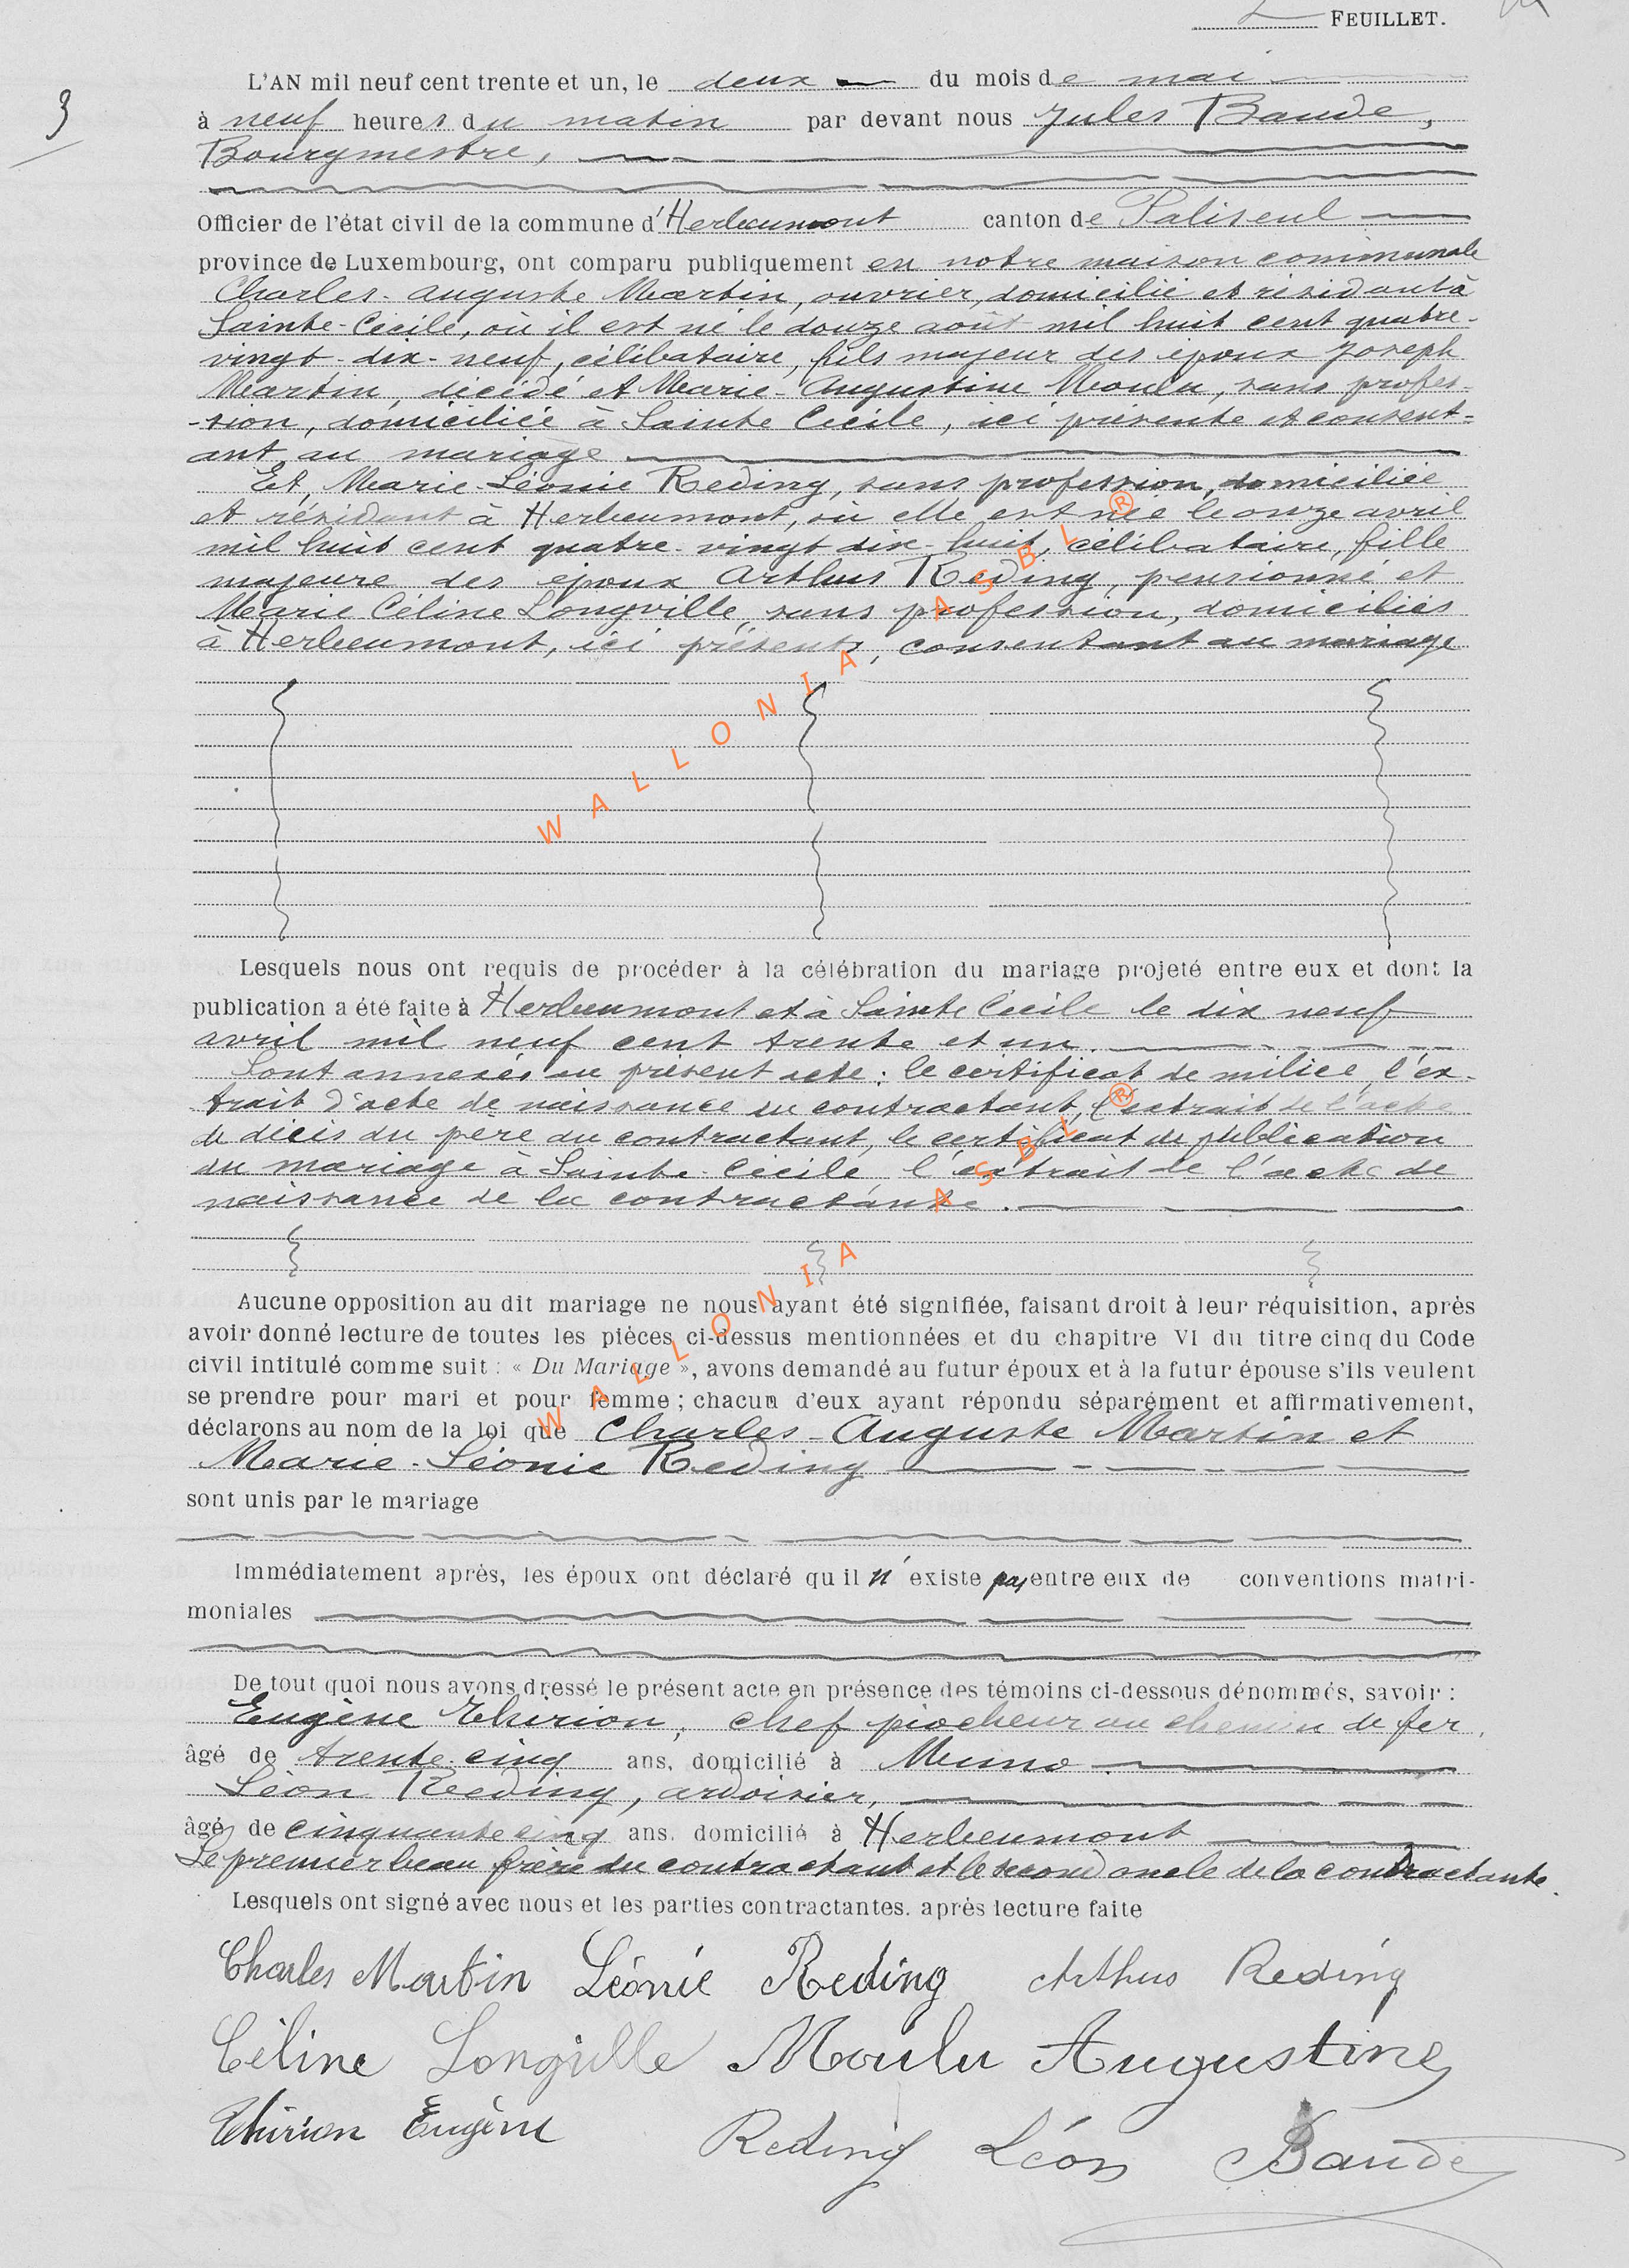 2 FEUILLET.
3
L'AN mil neuf cent trente et un, le deux du mois de mai
à neuf heures du matin par devant nous Jules Baude,
Bourgmestre,
Officier de l'état civil de la commune d'Herbeumont canton de Paliseul
province de Luxembourg, ont comparu publiquement en notre maison communale
Charles-Auguste Martin, ouvrier, domicilié et résidant à
Sainte-Cécile, où il est né le douze août mil huit cent quatre-
vingt-dix-neuf, célibataire, fils majeur des époux Joseph
Martin, décédé et Marie-Augustine Moulu, sans profes-
-sion, domiciliée à Sainte Cécile, ici présente et consent=
ant au mariage
Et, Marie-Léonie Reding, sans profession, domiciliée
et résidant à Herbeumont, où elle est née le onze avril
mil huit cent quatre-vingt dix-huit, célibataire, fille
majeure des époux Arthus Reding, pensionné et
Marie Céline Longville, sans profession, domiciliés
à Herbeumont, ici présents, consentant au mariage
WALLONIA ASBL ®
Lesquels nous ont requis de procéder à la célébration du mariage projeté entre eux et dont la
publication a été faite à Herbeumont et à Sainte Cécile le dix neuf
avril mil neuf cent trente et un.
Sont annexés au présent acte : le certificat de milice, l'ex-
trait d'acte de naissance du contractant, l'extrait de l'acte
de décès du père du contractant, le certificat de publication
du mariage à Sainte-Cécile, l'extrait de l'acte de
naissance de la contractante.
WALLONIA ASBL ®
Aucune opposition au dit mariage ne nous ayant été signifiée, faisant droit à leur réquisition, après
avoir donné lecture de toutes les pièces ci-dessus mentionnées et du chapitre VI du titre cinq du Code
civil intitulé comme suit : « Du Mariage », avons demandé au futur époux et à la futur épouse s'ils veulent
se prendre pour mari et pour femme ; chacun d'eux ayant répondu séparément et affirmativement,
déclarons au nom de la loi que Charles-Auguste Martin et
Marie-Léonie Reding
sont unis par le mariage
Immédiatement après, les époux ont déclaré qu'il n'existe pas entre eux de conventions matri-
moniales
De tout quoi nous avons dressé le présent acte en présence des témoins ci-dessous dénommés, savoir :
Eugène Thirion, chef piocheur au chemin de fer,
âgé de trente-cinq ans, domicilié à Muno.
Léon Reding, ardoisier,
âgé de cinquante cinq ans. domicilié à Herbeumont
Le premier beau frère du contractant et le second oncle de la contractante.
Lesquels ont signé avec nous et les parties contractantes. après lecture faite
Charles Martin Léonie Reding Arthus Reding
Céline Longville Moulu Augustine
Thirion Eugène Reding Léon Baude